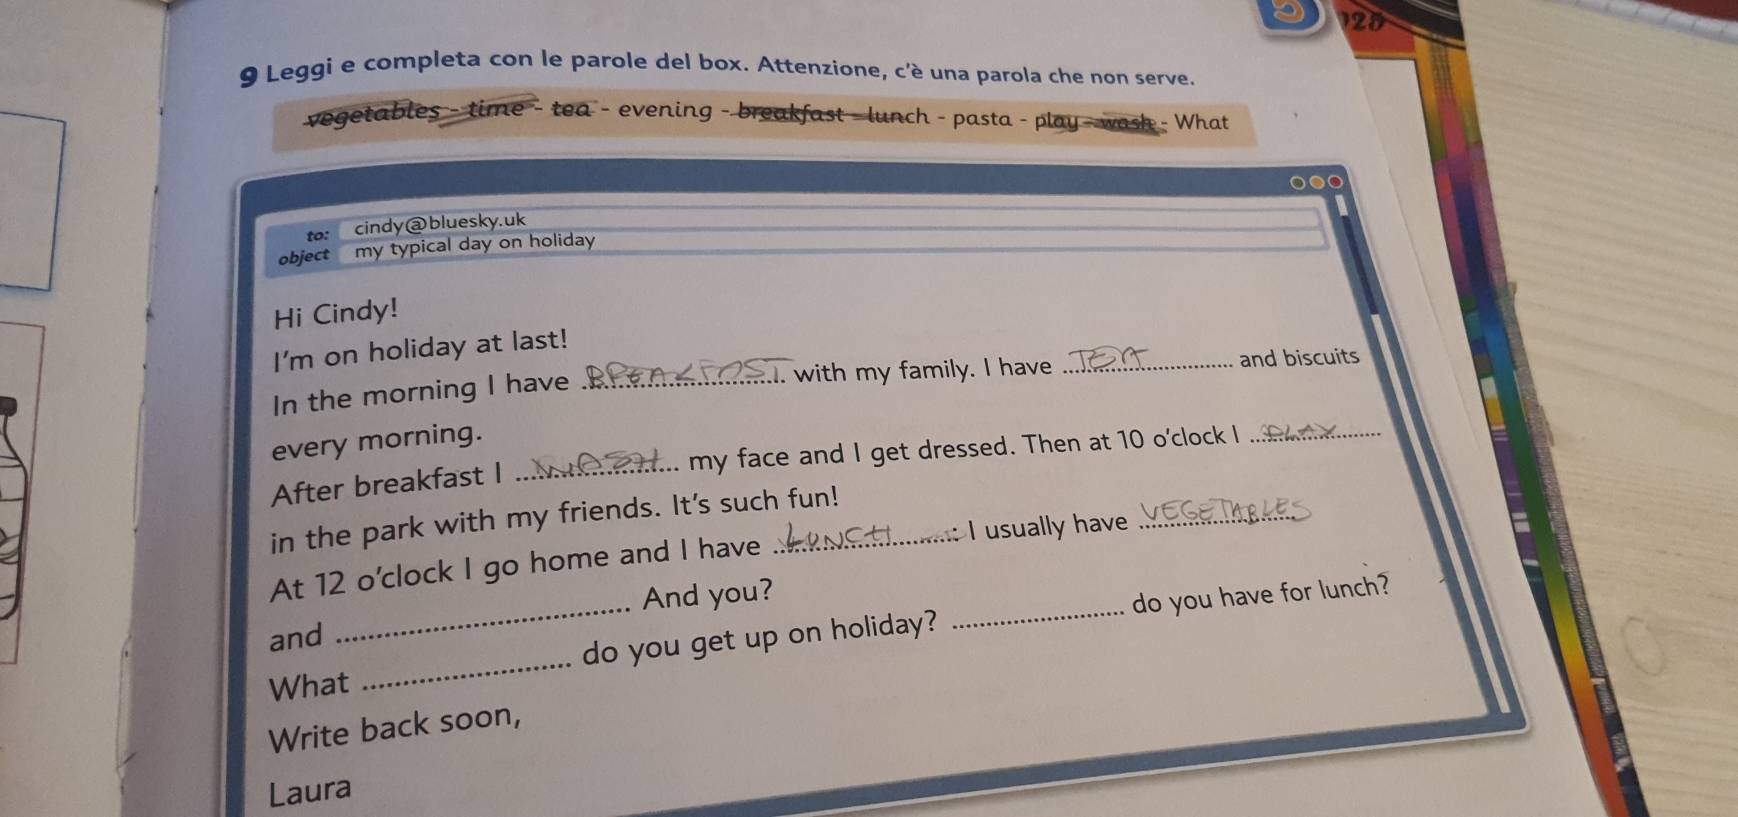 125
9 Leggi e completa con le parole del box. Attenzione, c'è una parola che non serve.
vegetables - time - tea - evening - breakfast - lunch - pasta - play - wash - What
to: cindy@bluesky.uk
object my typical day on holiday
Hi Cindy!
I'm on holiday at last!
In the morning I have BREAKFAST with my family. I have TEA and biscuits
every morning.
After breakfast I WASH my face and I get dressed. Then at 10 o'clock I PLAY
in the park with my friends. It's such fun!
At 12 o'clock I go home and I have LUNCH : I usually have VEGETABLES
and ............ . And you?
What ............ do you get up on holiday? ............ do you have for lunch?
Write back soon,
Laura